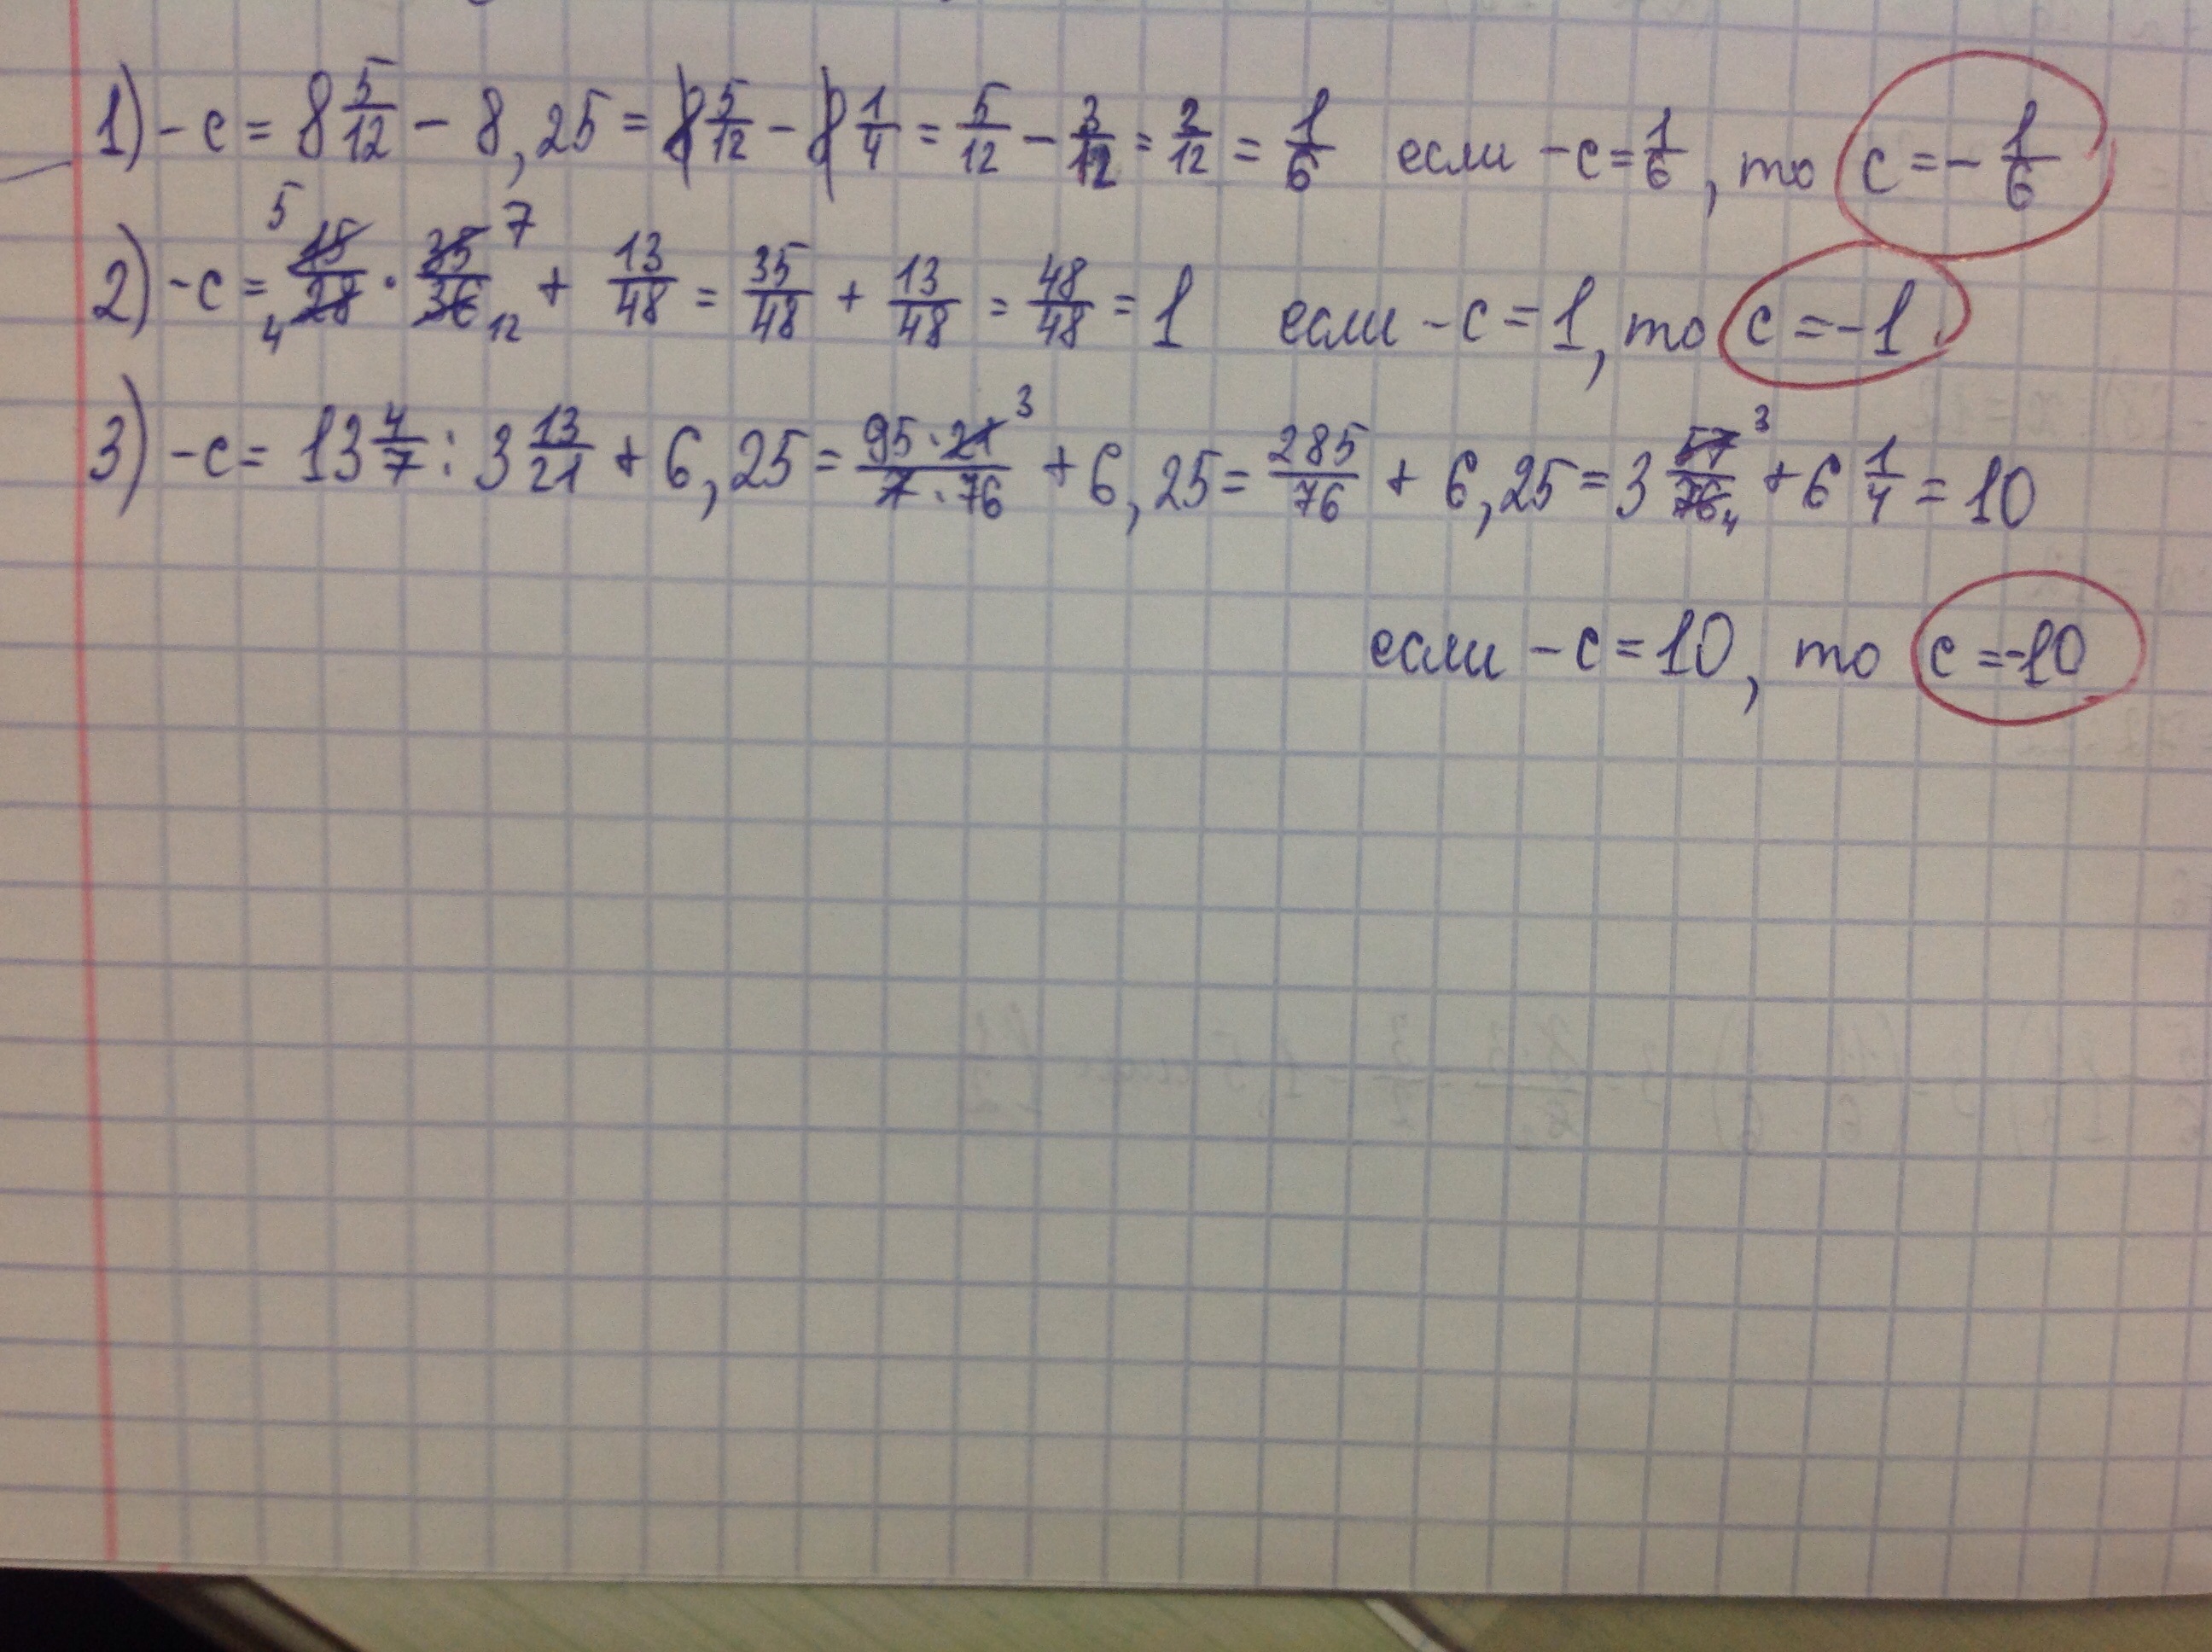 1) -c = 8 5/12 - 8,25 = 8 5/12 - 8 1/4 = 5/12 - 3/12 = 2/12 = 1/6 если -c = 1/6, то c = - 1/6
2) -c = 15/28 5 4 · 35/36 7 12 + 13/48 = 35/48 + 13/48 = 48/48 = 1 если -c = 1, то c = -1
3) -c = 13 4/7 : 3 13/21 + 6,25 = 95·21 3/7·76 + 6,25 = 285/76 + 6,25 = 3 57/76 3 4 + 6 1/4 = 10
если -c = 10, то c = -10